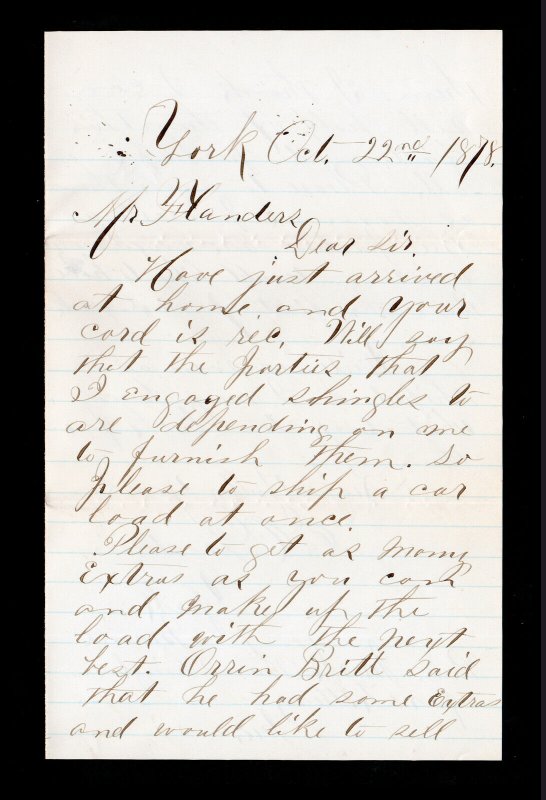 York, Oct. 22nd 1878.
Mr. Flanders
Dear Sir.
Have just arrived
at home and your
card is rec. Will say
that the parties that
I engaged shingles to
are depending on me
to furnish them. So
please to ship a car
load at once.
Please to get as many
Extras as you can
and make up the
load with the next
best. Orrin Britt said
that he had some Extras
and would like to sell